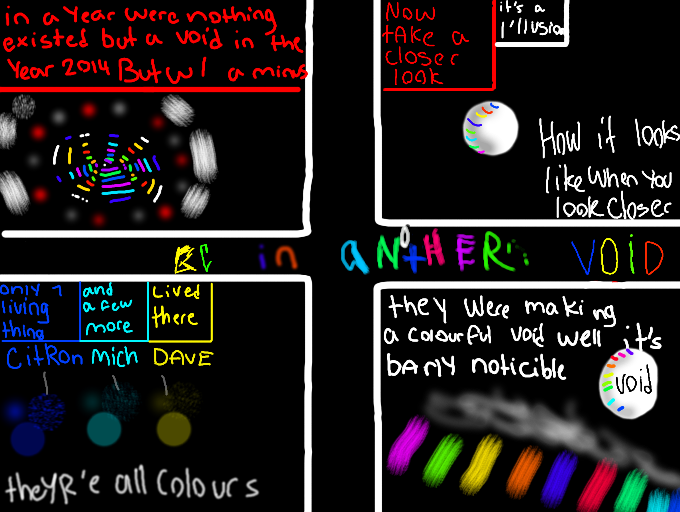 in a Year were nothing
existed but a void in the
Year 2014 But w/ a minus
NOW
tAKE a
CLOSER
look
it's a
I'llusion
How it looks
like When You
look Closer
in aNOtHER: VOID
only 1
living
thing
and
a few
more
Lived
there
CitRon Mich DAVE
theYR'e all Colours
they Were making
a colourful void well it's
bARlY noticible
void